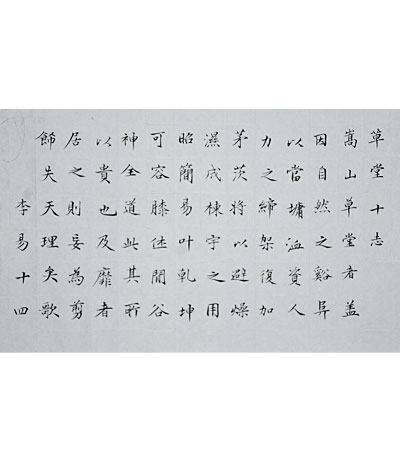 草堂十志
嵩山草堂者盖
因自然之谿阜
以當墉洫資人
力之締架復加
茅茨將以避燥
濕成棟宇之用
昭簡易叶乾坤
可容膝休閒谷
神全道此其所
以貴也及靡者
居之則妄為剪
飾失天理矣歌
李易十四